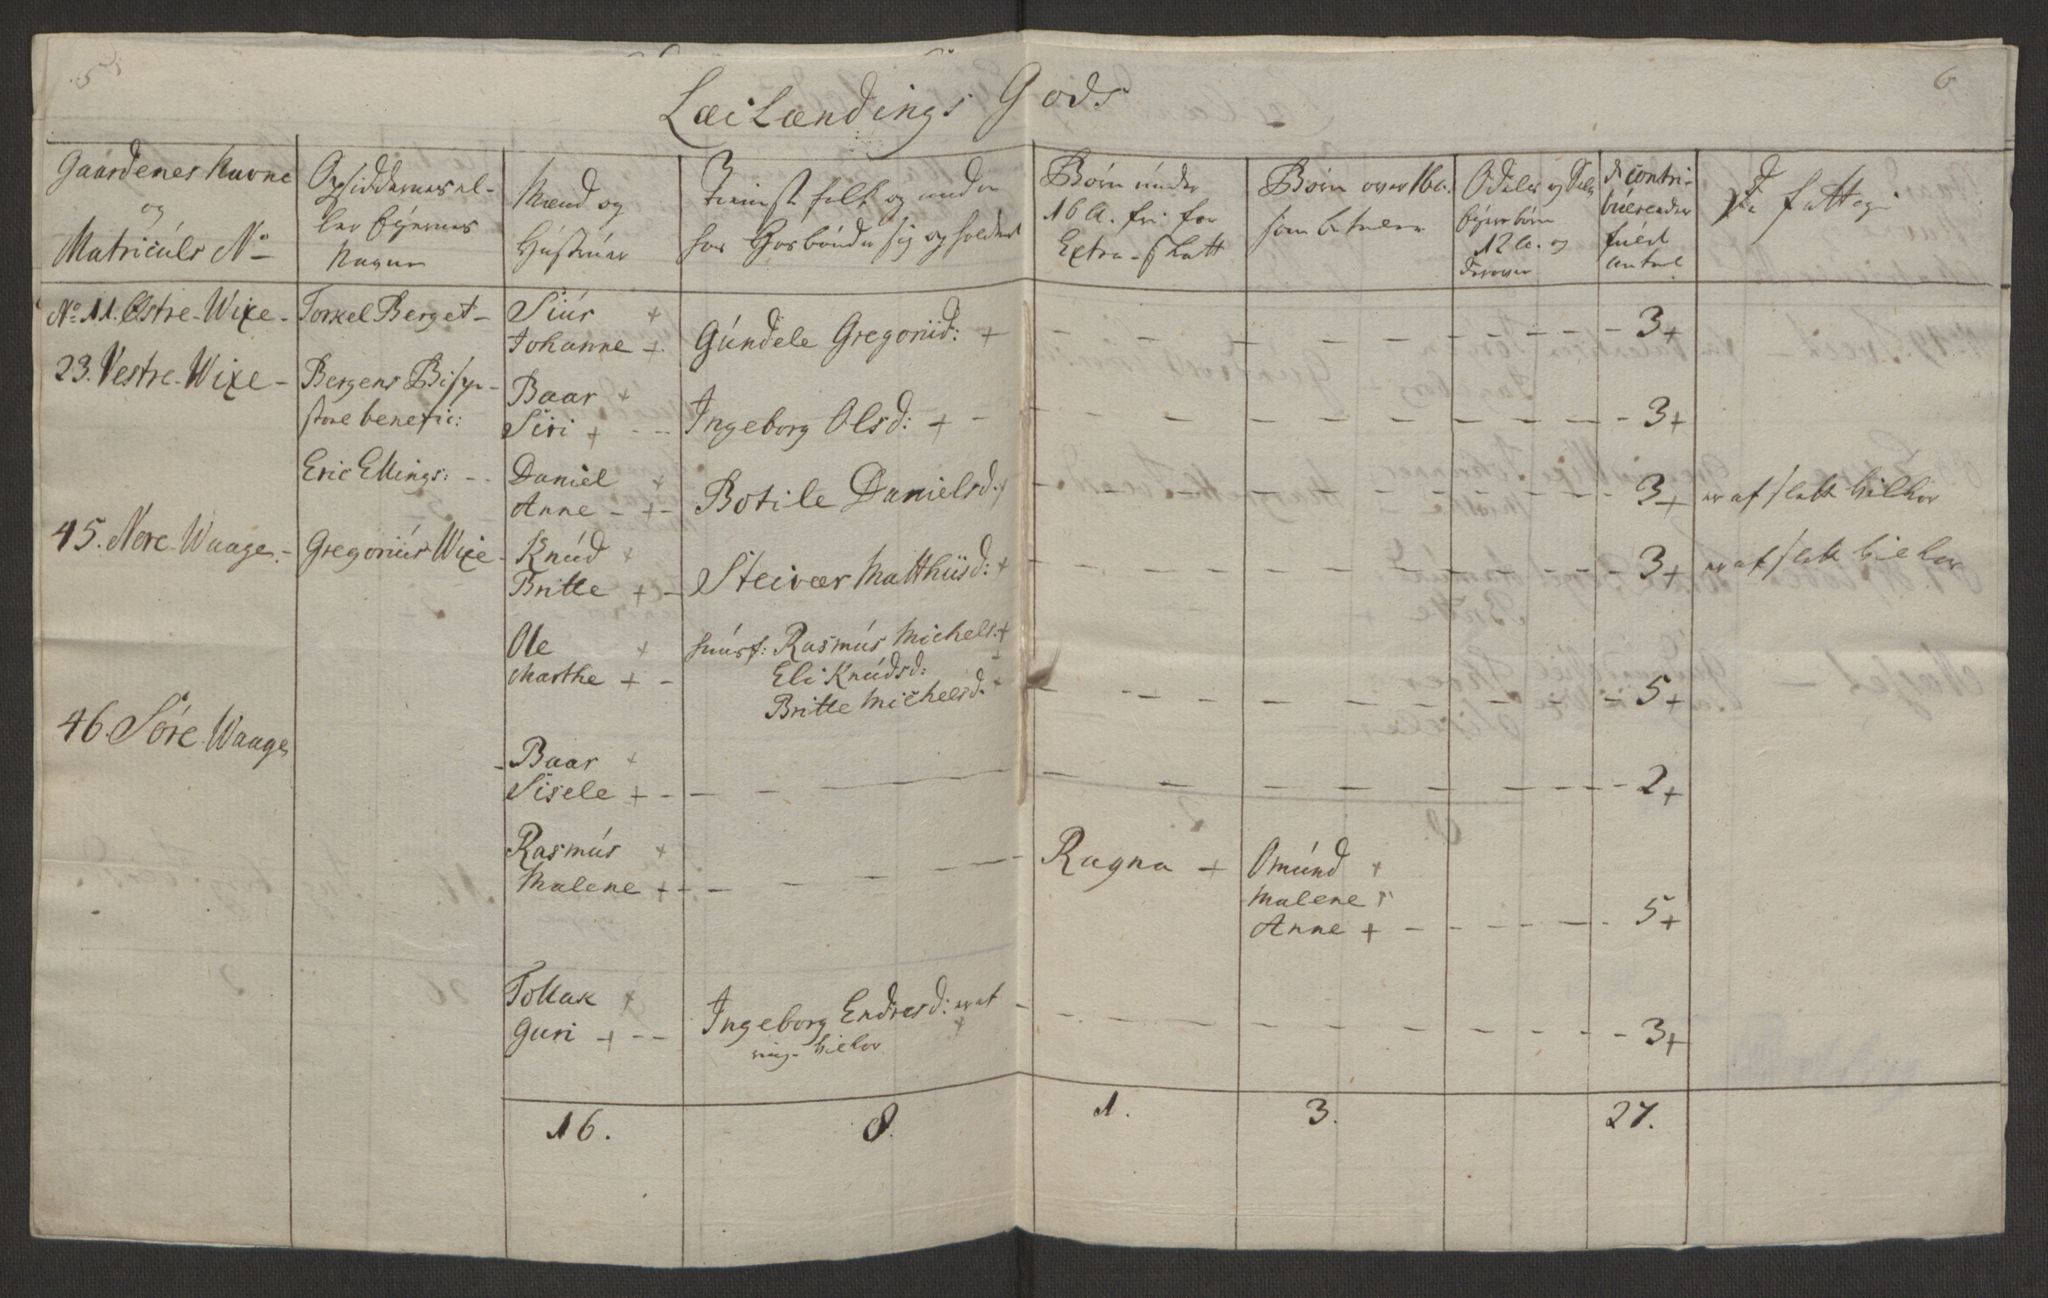 5
6
LæiLændings Gods
Gaardenes Navne
og
Matriculs No
Opsiddernes el-
ler Eyernes
Nagne
Mænd og
Hústrúer
Tienist folk og andre
hos Hosbónde sig og
Børn únder
16 A. fri for
Extra-Skatt
Børn over 16 a.
som betaler
Odels og
børn
12 A. og
derover
de contri-
búerender
fúlde
Antal
De fattige
No 11. Østre-Wixe- Torkel Berget- Siúr +
Johanne + Gúndele Gregoriid: + 3+
23. Vestre-Wixe- Bergens Bispe-
stoels benefic: Baar +
Siri + Ingeborg Olsd: + 3+
Eric Ellings: Daniel +
Anne + Botile Danielsd: + 3+ er af slette Vilkor
45. Nore-Waage- Gregoriús Wixe- Knúd +
Britte + Steivær Matthiisd: + 3+ er af slette Vilkor
Ole +
Marthe + húusf: Rasmús Michels: +
Eli Knúdsd:
Britte Michelsd: + 5+
46. Sóre-Waage
Baar +
Sisele + 2+
Rasmús +
Malene + Ragna + Omúnd +
Malene +
Anne + 5+
Tollak +
Guri + Ingeborg Endresd: er af
ring- Vilkor + 3+
16. 8. 1. 3. 27.